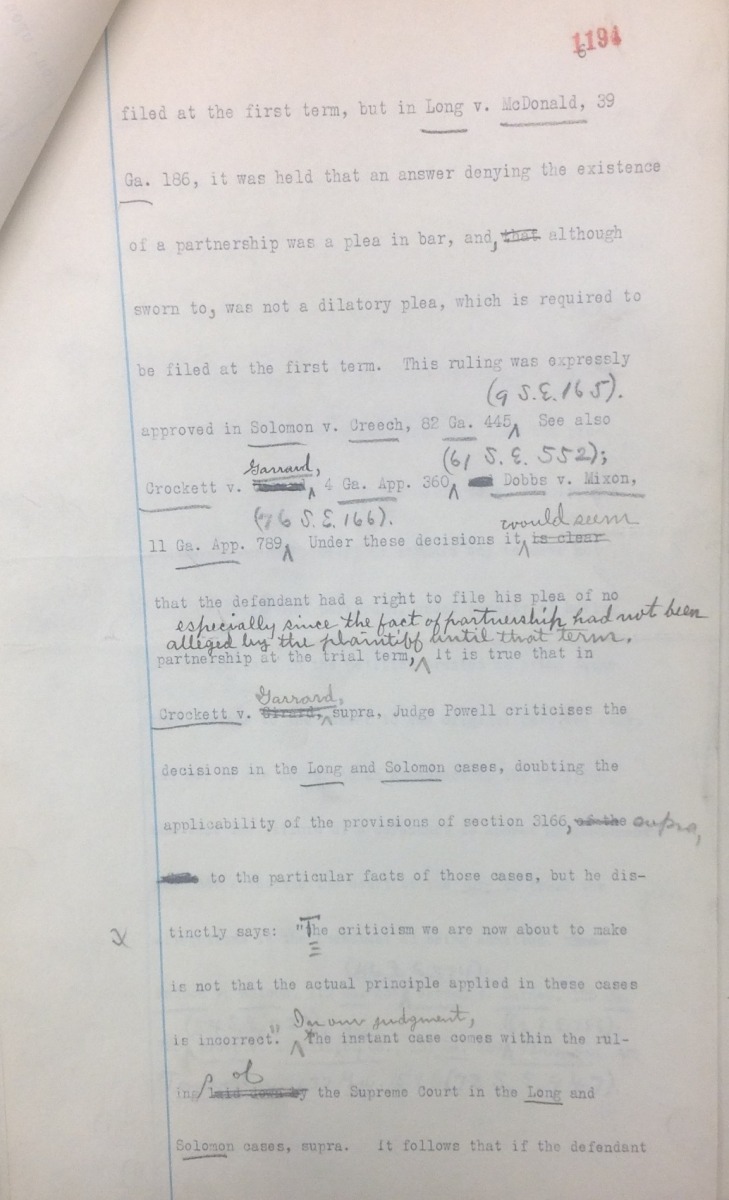 1194
6
filed at the first term, but in Long v. McDonald, 39
Ga. 186, it was held that an answer denying the existence
of a partnership was a plea in bar, and, that although
sworn to, was not a dilatory plea, which is required to
be filed at the first term. This ruling was expressly
(9 S.E. 165).
approved in Solomon v. Creech, 82 Ga. 445 See also
Garrard, (61 S.E. 552);
Crockett v. 4 Ga. App. 360 Dobbs v. Mixon,
(76 S.E. 166). would seem
11 Ga. App. 789 Under these decisions it is clear
that the defendant had a right to file his plea of no
especially since the fact of partnership had not been
alleged by the plaintiff until that term.
partnership at the trial term, it is true that in
Garrard,
Crockett v. Girard, supra, Judge Powell criticises the
decisions in the Long and Solomon cases, doubting the
applicability of the provisions of section 3166, of the supra,
to the particular facts of those cases, but he dis-
x tinctly says: "The criticism we are now about to make
is not that the actual principle applied in these cases
In our judgment,
is incorrect." The instant case comes within the rul-
of
ing laid down by the Supreme Court in the Long and
Solomon cases, supra. It follows that if the defendant